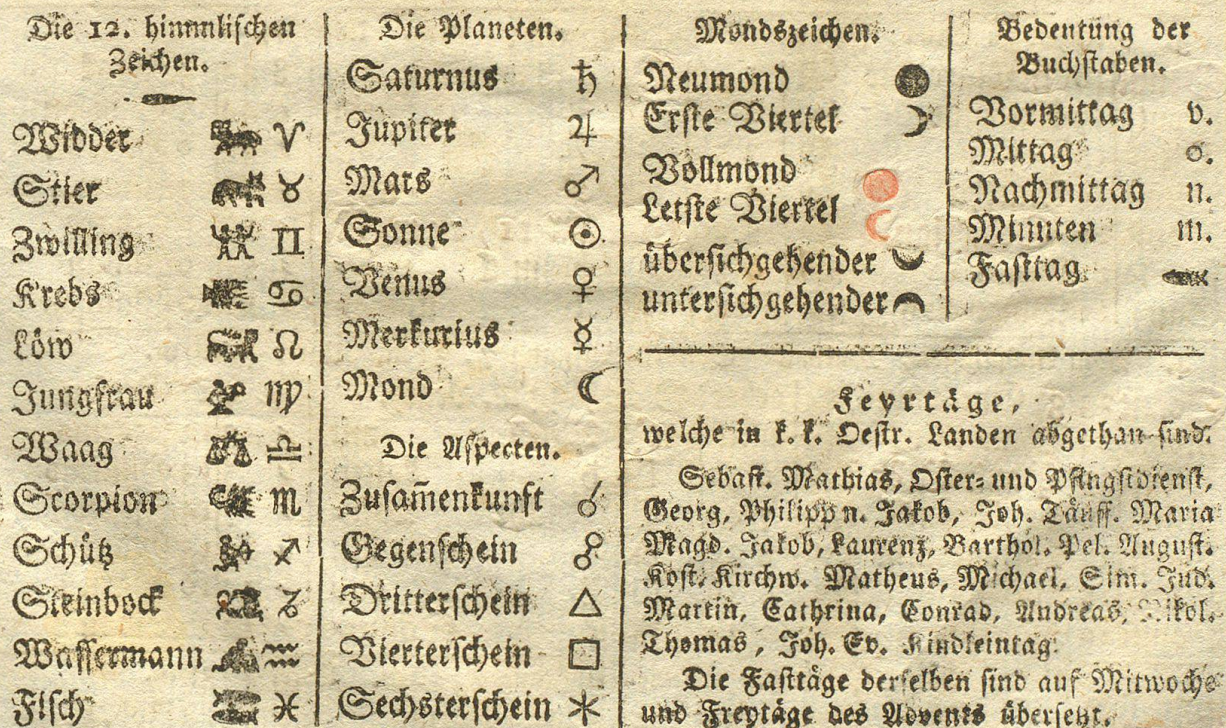 Die 12. himmlischen
Zeichen.
Widder ♈
Stier ♉
Zwilling ♊
Krebs ♋
Löw ♌
Jungfrau ♍
Waag ♎
Scorpion ♏
Schütz ♐
Steinbock ♑
Wassermann ♒
Fisch ♓
Die Planeten.
Saturnus ♄
Jupiter ♃
Mars ♂
Sonne ☉
Venus ♀
Merkurius ☿
Mond ☾
Die Aspecten.
Zusam̄enkunft ☌
Gegenschein ☍
Dritterschein △
Vierterschein □
Sechsterschein ⚹
Mondszeichen.
Neumond
Erste Viertel
Vollmond
Letste Viertel
übersichgehender
untersichgehender
Bedeutung der
Buchstaben.
Vormittag v.
Mittag o.
Nachmittag n.
Minuten m.
Fasttag
Feyrtäge,
welche in k. k. Oestr. Landen abgethan sind.
Sebast. Mathias, Oster- und Pfingstdienst,
Georg, Philipp n. Jakob, Joh. Täuff. Maria
Magd. Jakob, Laurenz, Barthol. Pel. August.
Kost. Kirchw. Matheus, Michael, Sim. Jud.
Martin, Cathrina, Conrad, Andreas, Nikol.
Thomas, Joh. Ev. Kindleintag.
Die Fasttäge derselben sind auf Mitwochs
und Freytäge des Advents übersetzt.